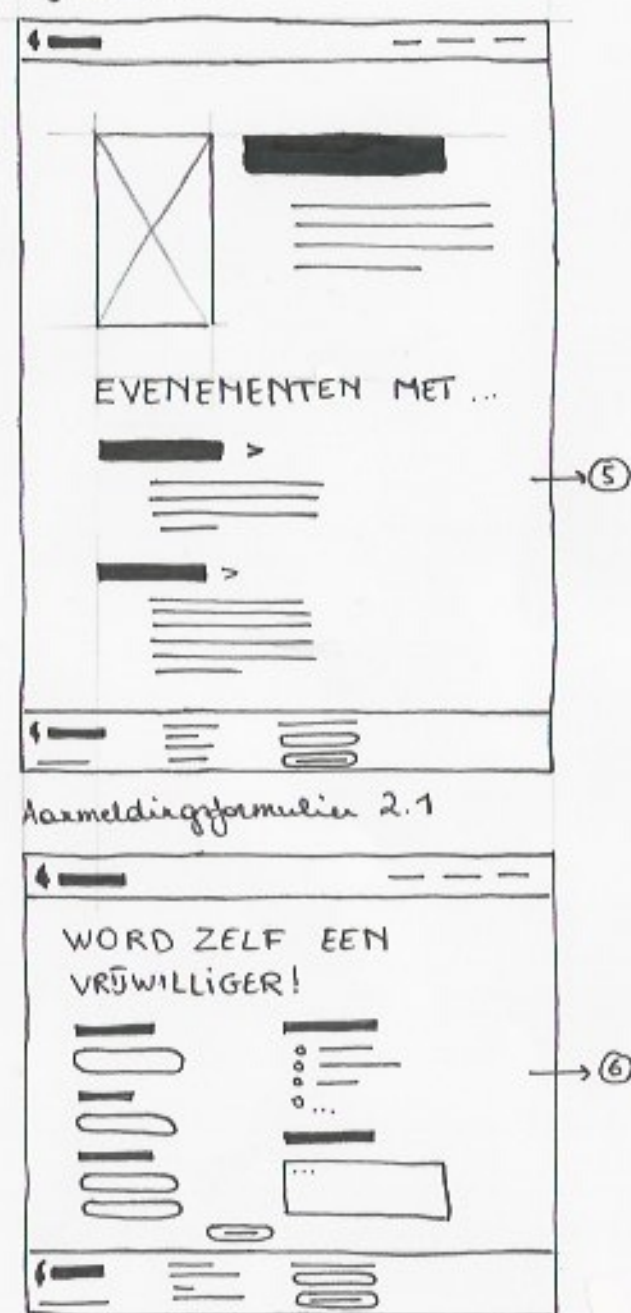 EVENEMENTEN MET ...
5
Aanmeldingsformulier 2.1
WORD ZELF EEN
VRIJWILLIGER!
6
...
...